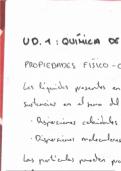 UD.1: QUÍMICA DE
PROPIEDADES FÍSICO-
Los líquidos presentes en
sustancias en el seno del
- Dispersiones coloidales
- Dispersiones moleculares
Las partículas pueden pro